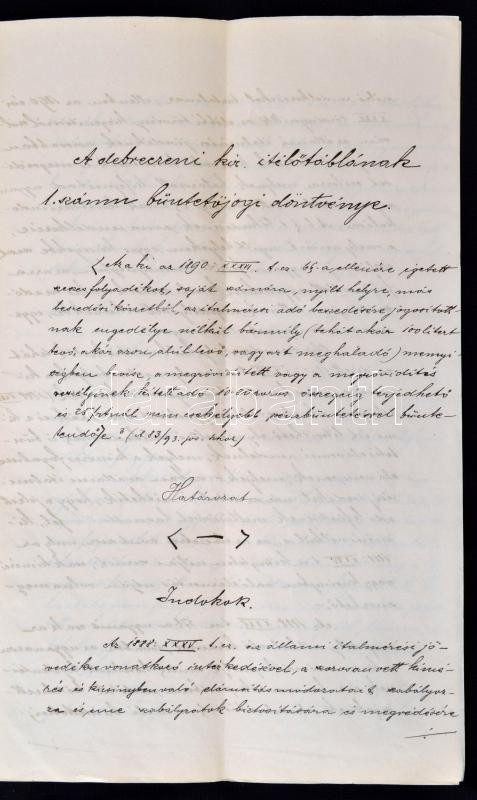 A debreczeni kir. itélőtáblának
1. számu büntetőjogi döntvénye.
Az aki az 1890: XXXVI t.cz. 6§-a ellenére égetett
szeszfolyadékot, saját számára, nyilt helyre, más
beszedési körletből, az italmérési adó beszedésére jogositott-
nak engedélye nélkül bármily (tehát akár 100 litert
tevő, akár azon alul levő, vagy azt meghaladó) menyi-
ségben bevisz, a megröviditett vagy a megrövidités
veszélyének kitett adó összegéig terjedhető
és 25 frtnál nem csekélyebb pénzbüntetéssel bünte-
tendő/e? (A 83/93. pos. tkhoz)
Határozat
< — >
Indokok.
Az 1888: XXXV t.cz. az állami italmérési jö-
vedékre vonatkozó intézkedésével, a szorosan vett kimé-
rés és kicsinyben való elárusitás módozatait szabályoz-
za és eme szabályzatok biztositására és megvédésére
darabanth